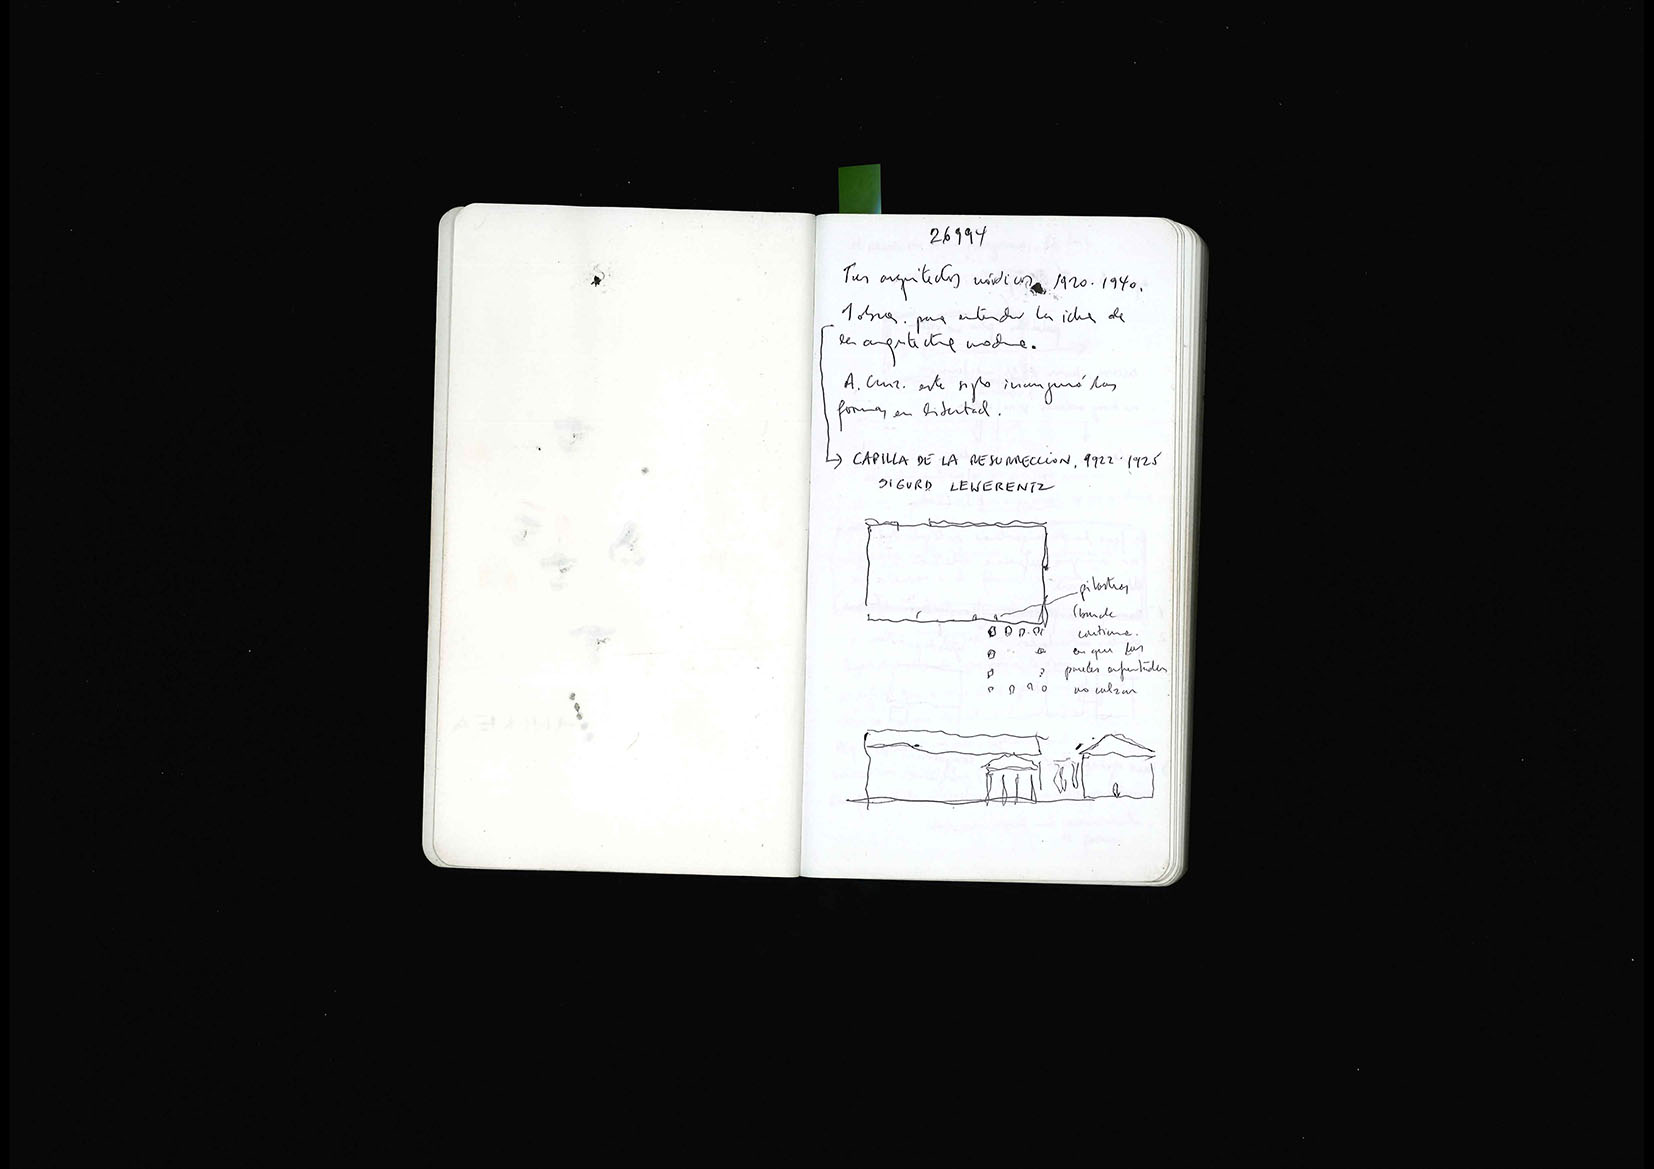 26994
Tres arquitectos nórdicos 1920-1940.
1 obra. para entender la idea de
la arquitectura moderna.
A. Cruz. este siglo inauguró las
formas en libertad.
→ CAPILLA DE LA RESURRECCION, 1922-1925
SIGURD LEWERENTZ
pilastras
(
continua.
en que las
paredes
no calzan